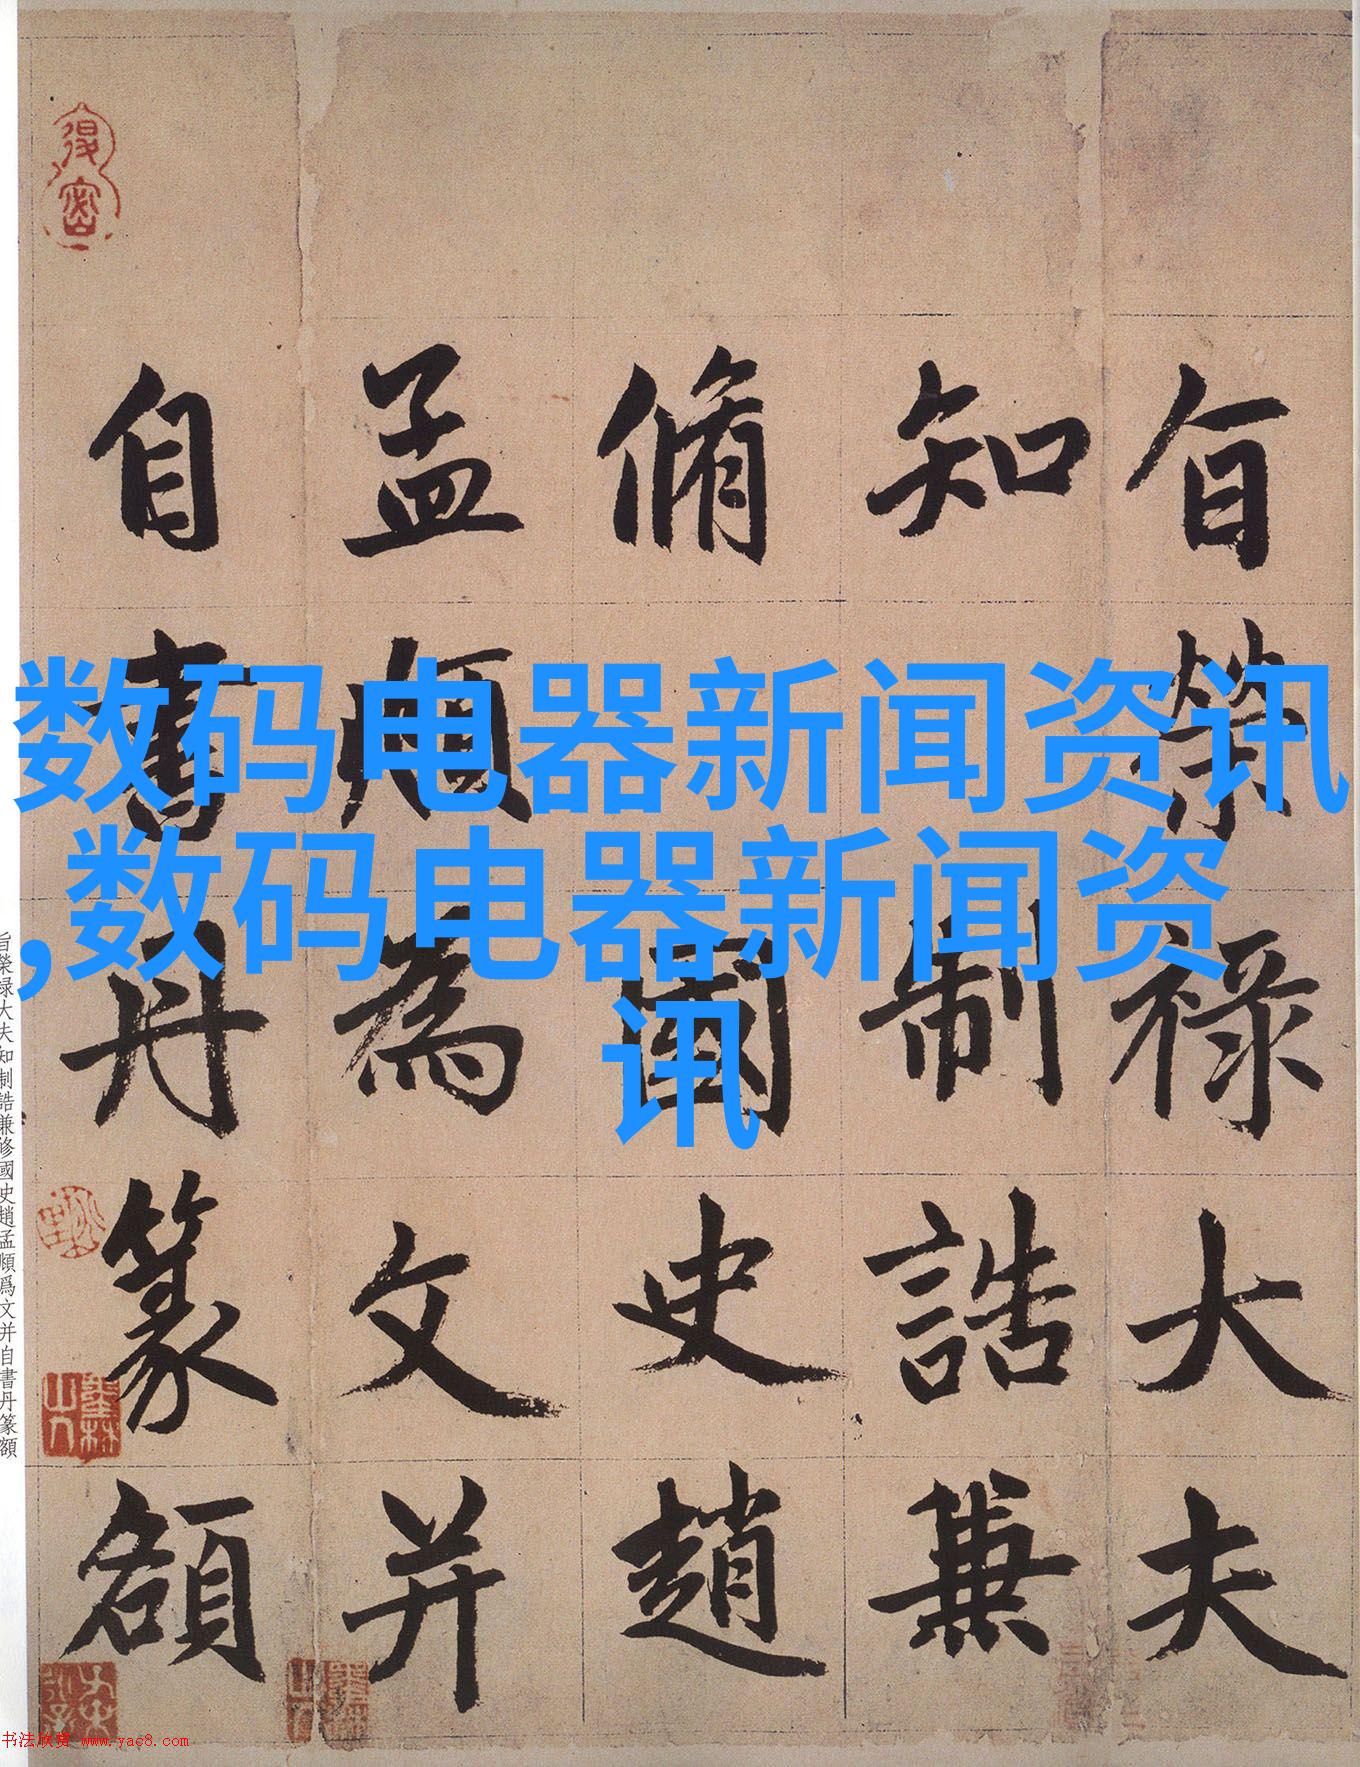 数码电器新闻资讯
,数码电器新闻资
讯
旨榮祿大夫
知制誥兼
脩國史趙
孟頫為文并
自書丹篆額
旨榮禄大夫知制誥兼修國史趙孟頫爲文并自書丹篆額
书法欣赏 www.yac8.com